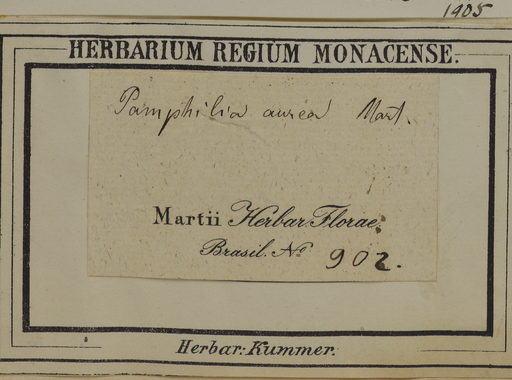 1905
HERBARIUM REGIUM MONACENSE.
Pamphilia aurea Mart.
Martii Herbar. Florae
Brasil. No 902.
Herbar: Kummer.